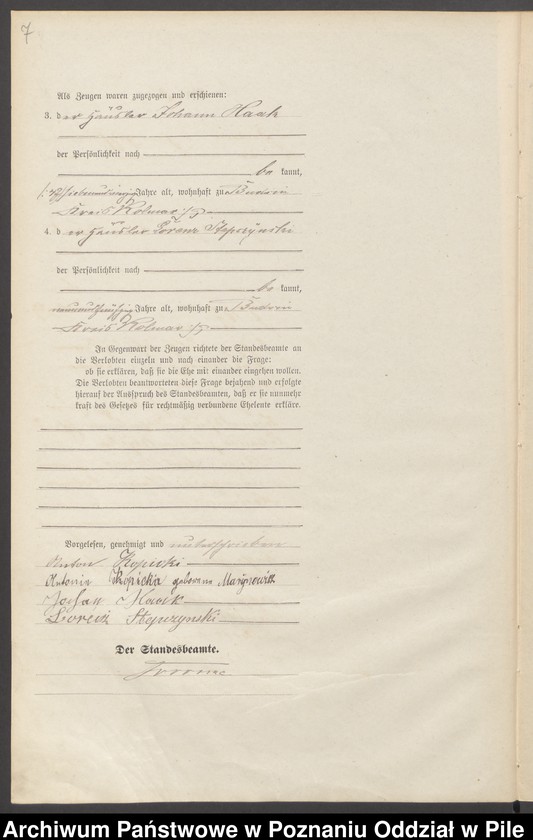 7
Als Zeugen waren zugezogen und erschienen:
3. der Häusler Johann Haak
der Persönlichkeit nach
be kannt,
Jahre alt, wohnhaft zu Budsin
Kreis Kolmar
4. der Häusler Lorenz Stepczynski
der Persönlichkeit nach
be kannt,
Jahre alt, wohnhaft zu Budsin
Kreis Kolmar
In Gegenwart der Zeugen richtete der Standesbeamte an
die Verlobten einzeln und nach einander die Frage:
ob sie erklären, daß sie die Ehe mit einander eingehen wollen.
Die Verlobten beantworteten diese Frage bejahend und erfolgte
hierauf der Ausspruch des Standesbeamten, daß er sie nunmehr
kraft des Gesetzes für rechtmäßig verbundene Eheleute erkläre.
Vorgelesen, genehmigt und unterschrieben
Anton Kopicki
Antonie Kopicka geborene
Johan Haack
Stepczynski
Der Standesbeamte.
Archiwum Państwowe w Poznaniu Oddział w Pile